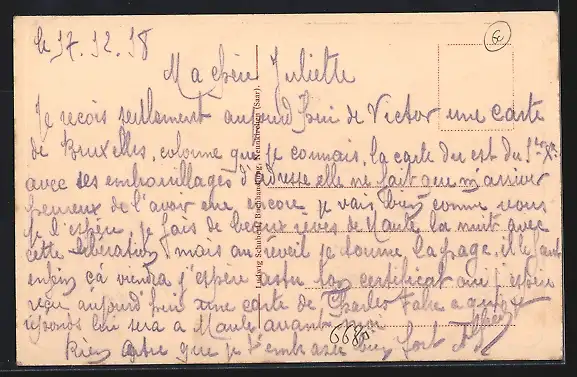 le 17.12.18
Ma chère Juliette
Je reçois seulement aujourd'hui de Victor une carte
de Bruxelles, colonne que je connais, la carte du est du 1er Xbre
avec ses embrouillages d'adresse elle ne fait que m'arriver
heureux de l'avoir eue encore je vais bien comme vous
je l'espère, je fais de beaux rêves de la nuit avec
cette libération, mais au réveil je tourne la page, il le faut
enfin ça viendra j'espère as tu le certificat oui j'espère
reçu aujourd'hui une carte de Charles Fabre a qui je
réponds lui sera a avant moi
Rien autre que je t'embrasse bien fort
Ludwig Schubert, Buchhandlung, Neunkirchen (Saar).